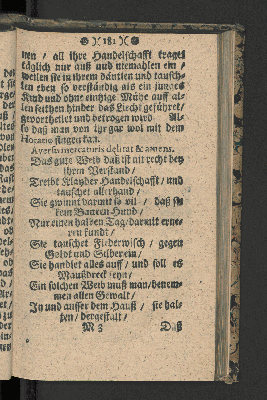 )( 181 )(
nen / all ihre Handelschafft traget
täglich nur auß und niemahlen ein /
weilen sie in ihrem und tausch-
len eben so verständig als ein junges
Kind und ohne einzige Mühe auff al-
len seithen hinder das Liecht geführet /
und betrogen wird. Al-
so daß man von ihr gar wol mit dem
Horatio singen kan.
Aversis mercuriis delirat & amens.
Das gute Weib daß ist nit recht bey
ihren Verstand /
Treibt Handelschafft / und
tauschet allerhand /
Sie gwinnt darmit so vil / daß sie
kein Hund /
Nur einen halben Tag / darmit
kundt /
Sie tauschet Fliderwisch / gegen
Goldt und Silberein /
Sie handlet alles auff / und soll es
Maußdreck seyn /
Ein solchen Weib muß man / benem-
men allen Gewalt /
In und ausser dem Hauß / sie hal-
ten / dergestalt /
M 3 Daß